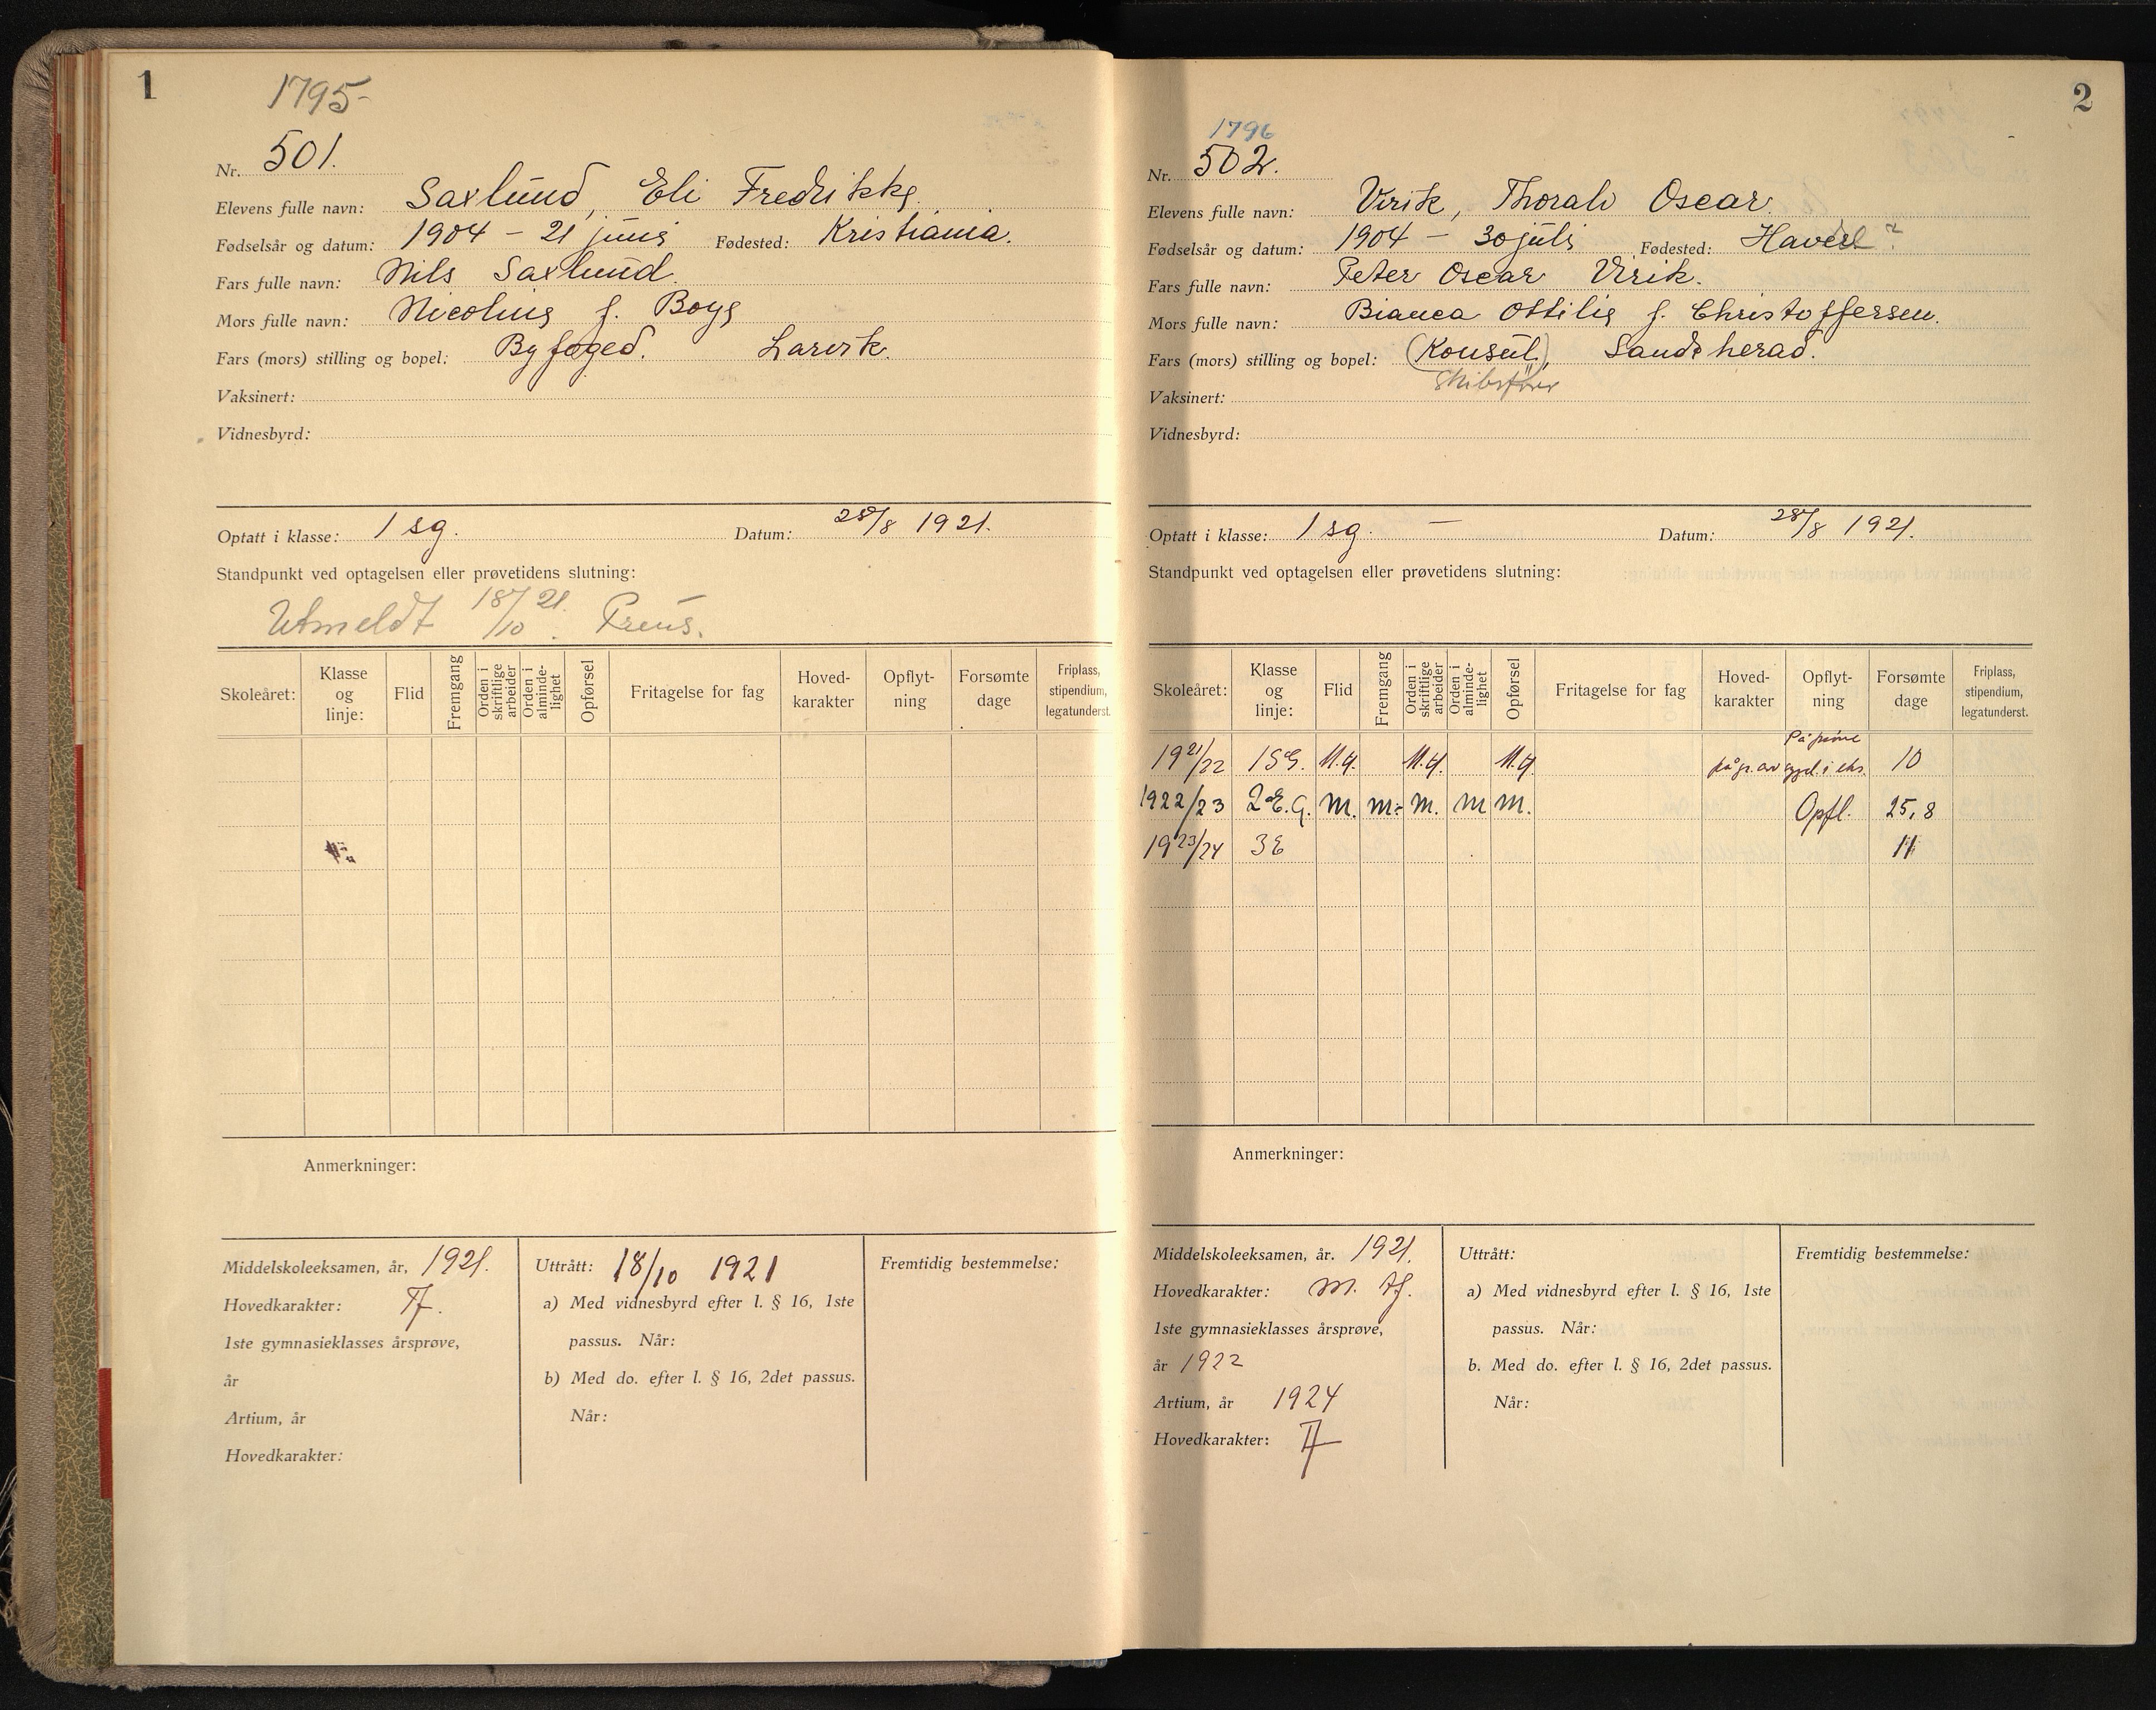 1
1795
Nr. 501.
Elevens fulle navn: Saxlund, Eli Fredrikke.
Fødselsår og datum: 1904 - 21 juni Fødested: Kristiania.
Fars fulle navn: Nils Saxlund.
Mors fulle navn: Nicoline f. Boye
Fars (mors) stilling og bopel: Byfoged. Larvik.
Vaksinert:
Vidnesbyrd:
Optatt i klasse: 1 sg. Datum: 28/8 1921.
Standpunkt ved optagelsen eller prøvetidens slutning:
Utmeldt 18/10 21. Preus.
Skoleåret: Klasse og linje: Flid Fremgang Orden i skriftlige arbeider Orden i alminde-lighet Opførsel Fritagelse for fag Hoved-karakter Opflyt-ning Forsømte dage Friplass, stipendium, legatunderst.
Anmerkninger:
Middelskoleeksamen, år, 1921.
Hovedkarakter: Tf.
1ste gymnasieklasses årsprøve,
år
Artium, år
Hovedkarakter:
Uttrått: 18/10 1921
a) Med vidnesbyrd efter l. § 16, 1ste
passus. Når:
b) Med do. efter l. § 16, 2det passus.
Når:
Fremtidig bestemmelse:
2
1796
Nr. 502.
Elevens fulle navn: Virik, Thoralv Oscar.
Fødselsår og datum: 1904 - 30 juli Fødested:
Fars fulle navn: Peter Oscar Virik.
Mors fulle navn: Bianca Ottilie f. Christoffersen.
Fars (mors) stilling og bopel: (Konsul), Sandeherad.
Skibsfører
Vaksinert:
Vidnesbyrd:
Optatt i klasse: 1 sg. — Datum: 28/8 1921.
Standpunkt ved optagelsen eller prøvetidens slutning:
Skoleåret: Klasse og linje: Flid Fremgang Orden i skriftlige arbeider Orden i alminde-lighet Opførsel Fritagelse for fag Hoved-karakter Opflyt-ning Forsømte dage Friplass, stipendium, legatunderst.
1921/22 1SG. M.g. M.g. M.g. på gr. av 10
1922/23 2 E.G. M. M:- M. M M. Opfl. 25,8
1923/24 3E 11
Anmerkninger:
Middelskoleeksamen, år. 1921.
Hovedkarakter: M. tf.
1ste gymnasieklasses årsprøve,
år 1922
Artium, år 1924
Hovedkarakter: Tf
Uttrått:
a) Med vidnesbyrd efter l. § 16, 1ste
passus. Når:
b. Med do. efter l. § 16, 2det passus.
Når:
Fremtidig bestemmelse: